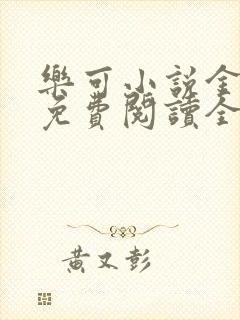 樂可小说全
免費閱讀全
黃又彭